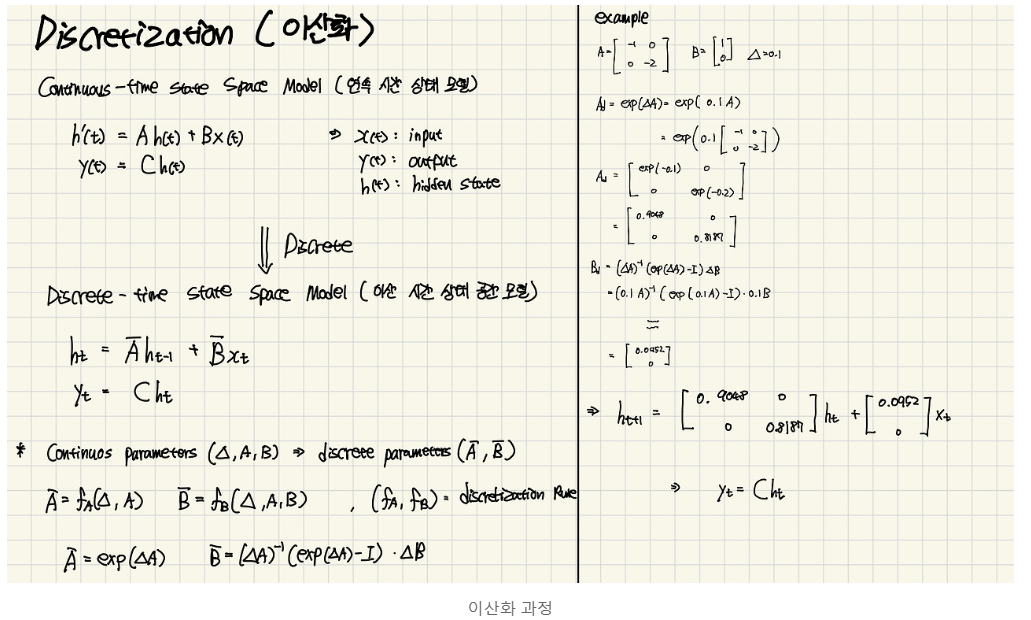 Discretization (이산화)
Continuous-time state space Model (연속 시간 상태 모델)
h'(t) = A h(t) + B x(t)
y(t) = C h(t)
⇒ x(t): input
y(t): output
h(t): hidden state
⇓ Discrete
Discrete-time state space Model (이산 시간 상태 공간 모델)
hₜ = A̅ hₜ₋₁ + B̅ xₜ
yₜ = C hₜ
* Continuos parameters (Δ, A, B) ⇒ discrete parameters (A̅, B̅)
A̅ = f_A(Δ, A) B̅ = f_B(Δ, A, B) , (f_A, f_B) = discretization Rule
A̅ = exp(ΔA) B̅ = (ΔA)⁻¹(exp(ΔA) - I) · ΔB
example
A = [-1 0
0 -2] B = [1
0] Δ = 0.1
A_d = exp(ΔA) = exp(0.1A)
= exp(0.1 [-1 0
0 -2])
A_d = [exp(-0.1) 0
0 exp(-0.2)]
= [0.9048 0
0 0.8187]
B_d = (ΔA)⁻¹(exp(ΔA) - I) ΔB
= (0.1A)⁻¹(exp(0.1A) - I) · 0.1B
=
= [0.0952
0]
⇒ hₜ₊₁ = [0.9048 0
0 0.8187] hₜ + [0.0952
0] xₜ
⇒ yₜ = C hₜ
이산화 과정